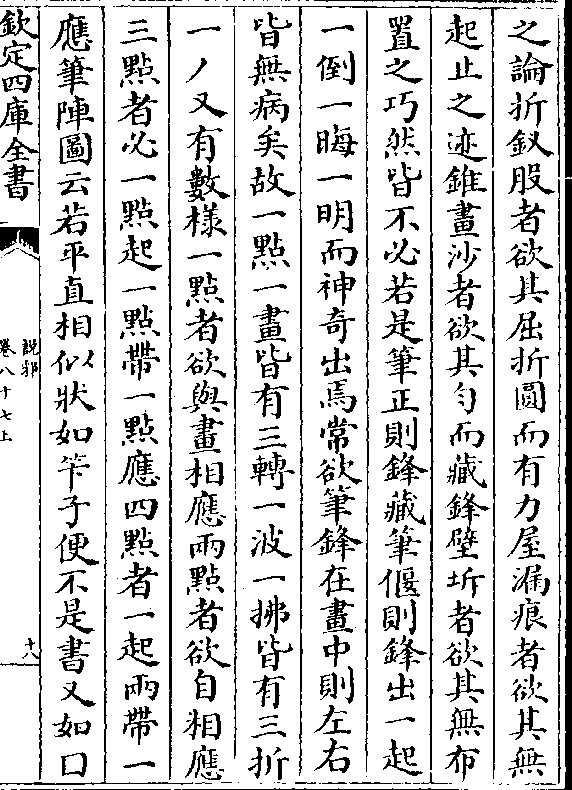 之論折釵股者欲其屈折圓而有力屋漏痕者欲其無
起止之迹錐畫沙者欲其勻而藏鋒壁坼者欲其無布
置之巧然皆不必若是筆正則鋒藏筆偃則鋒出一起
一倒一晦一明而神奇出焉常欲筆鋒在畫中則左右
皆無病矣故一點一畫皆有三轉一波一拂皆有三折
一丿又有數樣一點者欲與畫相應兩點者欲自相應
三點者必一點起一點帶一點應四點者一起兩帶一
應筆陣圖云若平直相似狀如筭子便不是書又如口
欽定四庫全書
說郛
卷八十七上
十八